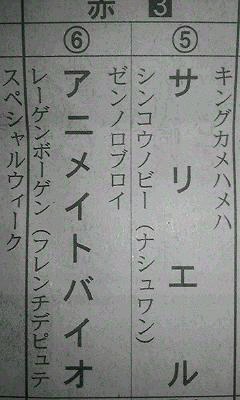 赤 3
⑤
キングカメハメハ
サリエル
シンコウノビー(ナシュワン)
⑥
ゼンノロブロイ
アニメイトバイオ
レーゲンボーゲン(フレンチデピュテ
スペシャルウィーク